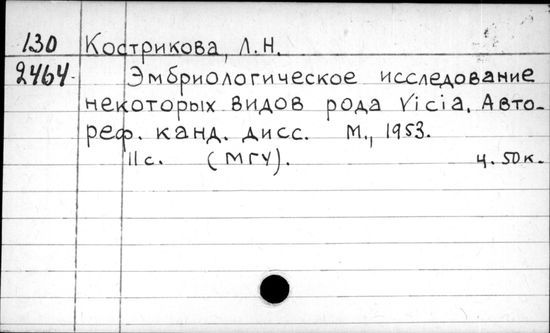 130 Кострикова, Л.Н.
2464. Эмбриологическое исследование
некоторых видов рода Vicia. Авто-
реф. канд. дисс. М., 1953.
11с. (МГУ). ц. 50к.